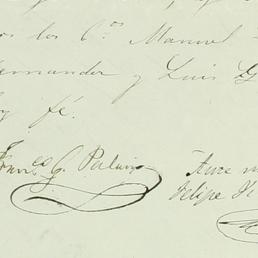 os los C.os Manuel
ernandez y Luis G
y fé.
Franco. G. Palacio
Ante m
Felipe